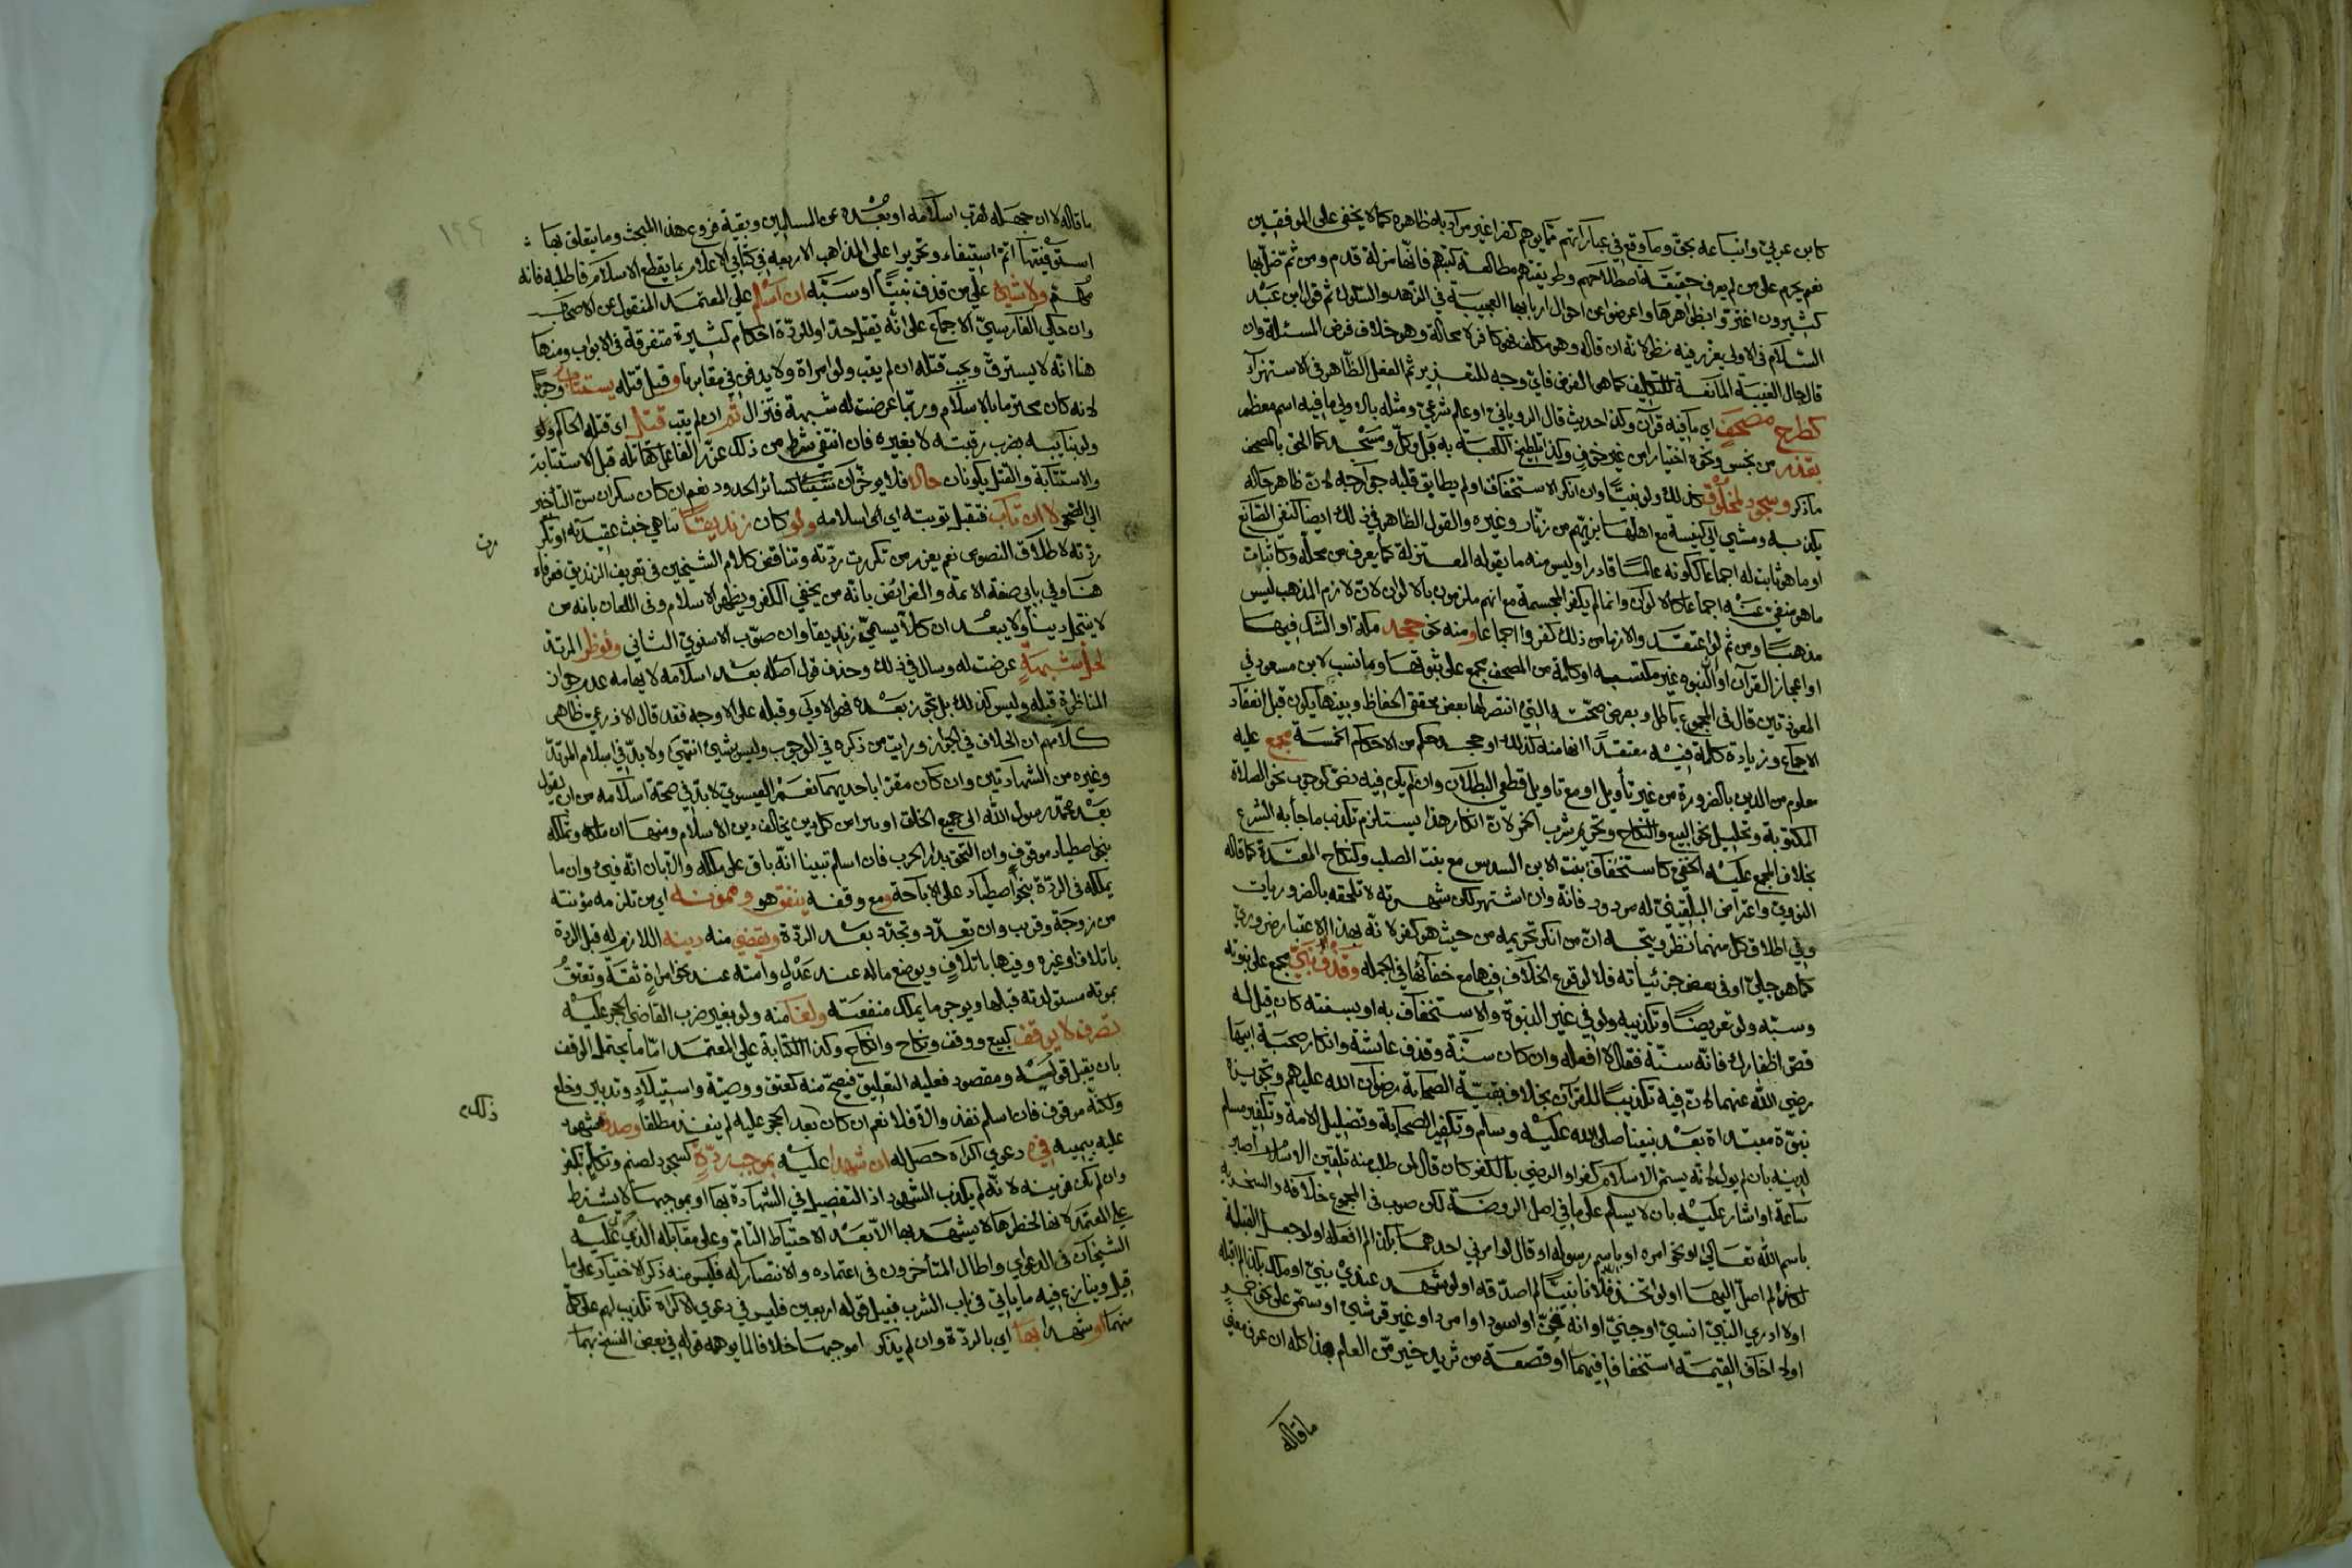 كابن عربي واتباعه بحق وما وقع في عباراتهم مما يوهم كفرا غير مراد به ظاهره كما لا يخفى على الموفقين
نعم يحرم على من لم يعرف حقيقة اصطلاحهم وطريقتهم مطالعة كتبهم فانها مزلة قدم ومن ثم ضل بها
كثيرون اغتروا بظواهرها واعرضوا عن احوال اربابها العجيبة في الزهد والسلوك ثم قول ابن عبد
السلام في الاولى يعزر فيه نظر لانه ان قاله وهو مكلف فهو كافر لا محالة وهو خلاف فرض المسئلة وان
قاله حال الغيبة المانعة للتكليف كما هي الفرض فاي وجه للتعزير ثم الفعل الظاهر في الاستهزاء
كطرح مصحف اي ما فيه قرآن وكذا حديث قال الروياني او عالم شرعي ومثله بالاولى ما فيه اسم معظم
بقذر من نجس ونحوه اختيارا من غير خوف وكذا تلطيخ الكعبة به قبل وكل ومسجد كما الحق بالمصحف
ما ذكر وسجود لمخلوق كذلك ولو نبيا وان انكر الاستخفاف او لم يطابق قلبه جوارحه لان ظاهر حاله
يكذبه ومشي الى كنيسة مع اهلها بزيهم من زنار وغيره والقول الظاهر في ذلك ايضا كنفي الصانع
او ما هو ثابت له اجماعا ككونه عالما قادرا وليس منه ما يقوله المعتزلة كما يعرف من محله وكاثبات
ما هو منفي عنه اجماعا كالالوان وانما لم يكفر المجسمة مع انهم ملزمون بالالوان لان لازم المذهب ليس
مذهبا ومن ثم لو اعتقد والازمام ذلك كفروا اجماعا ومنه نحو جحد مكة او الشك فيها
او اعجاز القرآن او النبوة غير مكتسبه او كلمة من المصحف مجمع على ثبوتها وما نسب لابن مسعود في
المعوذتين قال في المجموع باطل وبعرض صحته التي انتصر لها بعض محققي الحفاظ وبينها يكون قبل انعقاد
الاجماع وزيادة كلمة فيه معتقدا انها منه كذلك او جحد حكم من الاحكام الخمسة مجمع عليه
معلوم من الدين بالضرورة من غير تأويل او مع تاويل قطعي البطلان وان لم يكن فيه نص كوجوب نحو الصلاة
المكتوبة وتحليل نحو البيع والنكاح وتحريم شرب الخمر لان انكار هذا يستلزم تكذيب ما جاء به الشرع
بخلاف المجمع عليه الخفي كاستخفاف بنت الابن السدس مع بنت الصلب وكنكاح المعتدة كما قاله
النووي واعتراض البلقيني له مردود فانه وان اشتهر لكن شهرته لا تلحقه بالضروريات
وفي اطلاق كل منهما نظر ويتجه ان من انكر تحريمه من حيث هو كفر لانه بهذا الاعتبار ضروري
كما هو جلي او في بعض جزئياته فلا لوقوع الخلاف فيها مع خفائها في الجملة وقذف نبي مجمع على نبوته
وسبه ولو تعريضا وتكذيبه ولو في غير النبوة والاستخفاف به او بسنته كان قيل له
قص اظفارك فانه سنة فقال لا افعله وان كان سنة وقذف عائشة وانكار صحبة ابيها
رضي الله عنهما لان فيه تكذيبا للقرآن بخلاف بقية الصحابة رضوان الله عليهم وتجويزه
نبوة مبتداة بعد نبينا صلى الله عليه وسلم وتكفير الصحابة وتضليل الامة وتكفير مسلم
لدينه بان لم يؤل لانه يستمر الاسلام كفرا والرضى بالكفر كان قال لمن طلب منه تلقين الاسلام اصبر
ساعة او اشار عليه بان لا يسلم على ما في اصل الروضة لكن صوب في المجموع خلافه والسخرية
باسم الله تعالى او نحو امره او باسم رسوله او قال لو امرني احدهما بكذا لم افعله او لو جعل القبلة
لم اصل اليها او لو اتخذ فلانا نبيا لم اصدقه او لو شهد عندي بنبي او ملك بكذا لم اقبله
او لا ادري النبي انسي او جني او انه جني او اسود او امرد او غير قرشي او ستمى على نحو خمر
او لا اخاف القيمة استخفافا فيهما او قصعة من ثريد خير من العلم هذا كله ان عرف معنى
ما قاله
ما قاله لا ان جهله لقرب اسلامه او بعده عن المسلمين وبقية فروع هذا المبحث وما يتعلق بها
استوفيتها اتم استيفاء وتحريرا على المذاهب الاربعة في كتابي الاعلام بما يقطع الاسلام فاطلبه فانه
مهم ولا شيء على من قذف نبيا او سبه ان اسلم على المعتمد المنقول عن الاصحاب
وان حكى الفارسي الاجماع على انه يقتل حدا وللردة احكام كثيرة متفرقة في الابواب ومنها
هنا انه لا يسترق ويجب قتله ان لم يتب ولو امراة ولا يدفن في مقابرنا وقبل قتله يستتاب وجوبا
لانه كان محترما بالاسلام وربما عرضت له شبهة فتزال ثم ان لم يتب قتل اي قتله الحاكم ولو
ولو بنايبه بضرب رقبته لا بغيره فان انتفى شرط من ذلك عزر الفاعل كقاتله قبل الاستتابة
والاستتابة والقتل يكونان حالا فلا يوخران شيئا كسائر الحدود نعم ان كان سكران سن التأخير
الى الصحو لا ان تاب فتقبل توبته اي اى اسلامه ولو كان زنديقا تناهى خبث عقيدته او تكرر
مرت
ردته لاطلاق النصوص نعم يعزر من تكررت ردته وتناقض كلام الشيخين في تعريف الزنديق فعرفاه
هنا وفي بابي صفة الائمة والفرائض بانه من يخفي الكفر ويظهر الاسلام وفي اللعان بانه من
لا ينتحل دينا ولا يبعد ان كلا يسمى زنديقا وان صوب الاسنوي الثاني ونوظر المرتد
لحل شبهة عرضت له وسال في ذلك وحذف قول اصله بعد اسلامه لا يهامه عدم جواز
المناظرة قبله وليس كذلك بل تجوز بعده فهو الاولى وقبله على الاوجه فقد قال الاذرعي ظاهر
كلامهم ان الخلاف في الجواز ورايت من ذكره في الوجوب وليس بشيء انتهى ولا بد في اسلام المرتد
وغيره من الشهادتين وان كان مقرا باحديهما نعم العيسوي لا بد في صحة اسلامه من ان يقول
بعد محمد رسول الله الى جميع الخلق او يبرا من كل دين يخالف دين الاسلام ومنها ان ملكه وتملكه
بنحو اصطياد موقوف وان التحق بدار الحرب فان اسلم تبينا انه باق على ملكه والا بان انه فيء وان ما
يملكه في الردة بنحو اصطياد على الاباحة ومع وقفه ينفق هو وممونه اي من تلزمه مؤنته
من زوجة وقريب وان تعدد وتجدد بعد الردة ويقضى منه دينه اللازم له قبل الردة
باتلاف او غيره وفيها باتلاف ويوضع ماله عند عدل وامته عند نحو امراة ثقة وتعتق
بموته مستولدته قبلها ويوجر ما يملك منفعته ولغا منه ولو بغير ضرب القاضي الحجر عليه
تصرف لا يوقف كبيع ووقف ونكاح وانكاح وكذا الكتابة على المعتمد اما ما يحتمل الوقف
بان يقبل قوله ومقصود فعليه التعليق فيصح منه كعتق ووصية واستيلاد وتدبير وخلع
ذلك
ولكنه موقوف فان اسلم نفذ والا فلا نعم ان كان بعد الحجر عليه لم ينفذ مطلقا وصدق مشهود
عليه بيمينه في دعوى اكراه حصل له ان شهدا عليه بموجب ردة كسجود لصنم وتكلم بكفر
وان لم تكن قرينة لانه لم يكذب الشهود اذ التفصيل في الشهادة بها او بموجبها لا يشترط
على المعتمد لانها لخطرها لا يشهد بها الا بعد الاحتياط التام وعلى مقابله الذي عليه
الشيخان في الدعاوي واطال المتأخرون في اعتماده والانتصار له فليس منه ذكر الاختيار على ما
قيل وينازع فيه ما ياتي في باب الشرب قبيل قوله اربعين فليس في دعوى الاكراه تكذيب لهم على كل
منهما او شهدا بها اي بالردة وان لم يذكر اموجبها خلافا لما يوهمه قوله في بعض النسخ بهما